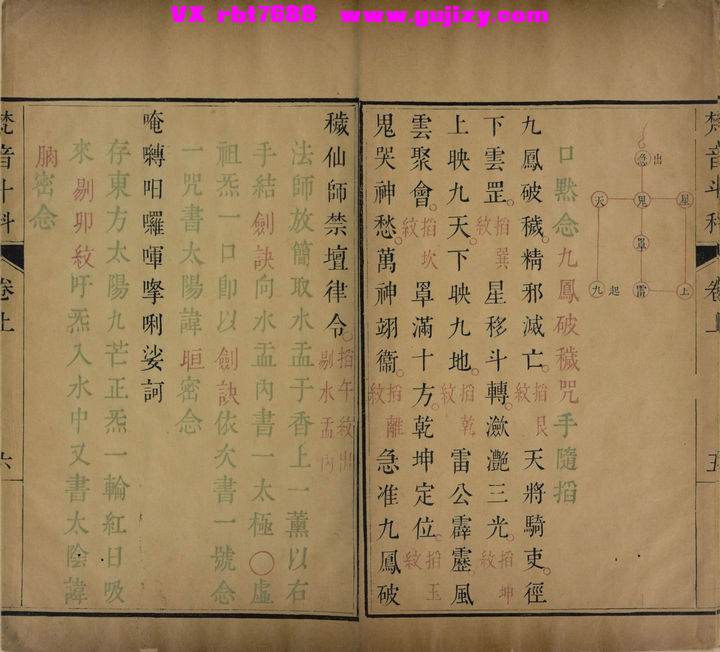 VX rbt7688 www.gujizy.com
梵音斗科 卷上 五
急 出
天 鬼 星
罩
九 起 雷 上
口默念九鳳破穢咒手隨掐
九鳳破穢。精邪滅亡。掐艮紋天將騎吏。徑
下雲罡。掐巽紋星移斗轉。瀲灔三光。掐坤紋
上映九天。下映九地。掐乾紋雷公霹靂。風
雲聚會。掐坎紋罩滿十方。乾坤定位。掐玉紋
鬼哭神愁。萬神翊衞。掐離紋急准九鳳破
穢仙師禁壇律令。掐午紋出剔水盂內
法師放簡取水盂于香上一薰以右
手結劍訣向水盂內書一太極〇虛
祖炁一口即以劍訣依次書一號念
一咒書太陽諱晅密念
唵囀呬囉㗲㨗唎娑訶
存東方太陽九芒正炁一輪紅日吸
來剔卯紋吁炁入水中又書太陰諱
朒密念
梵音斗科 卷上 六